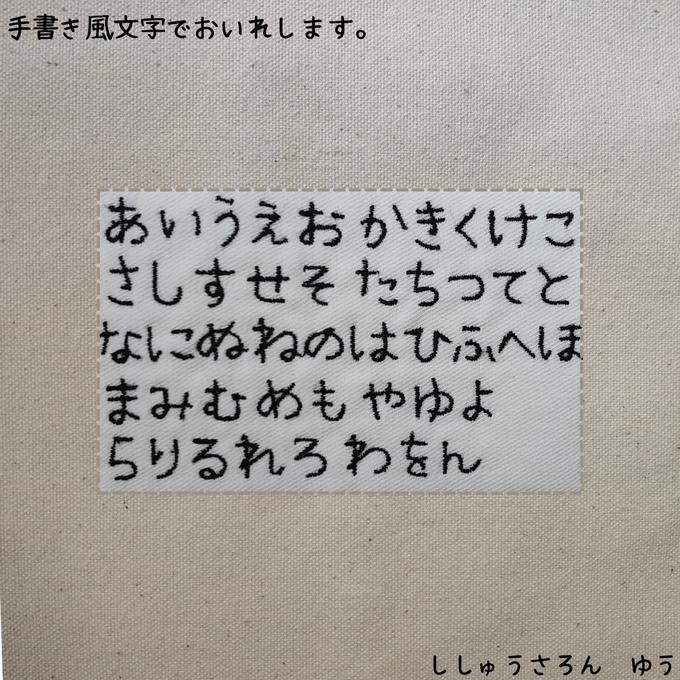 手書き風文字でおいれします。
あいうえおかきくけこ
さしすせそたちつてと
なにぬねのはひふへほ
まみむめもやゆよ
らりるれろわをん
ししゅうさろん　ゆう